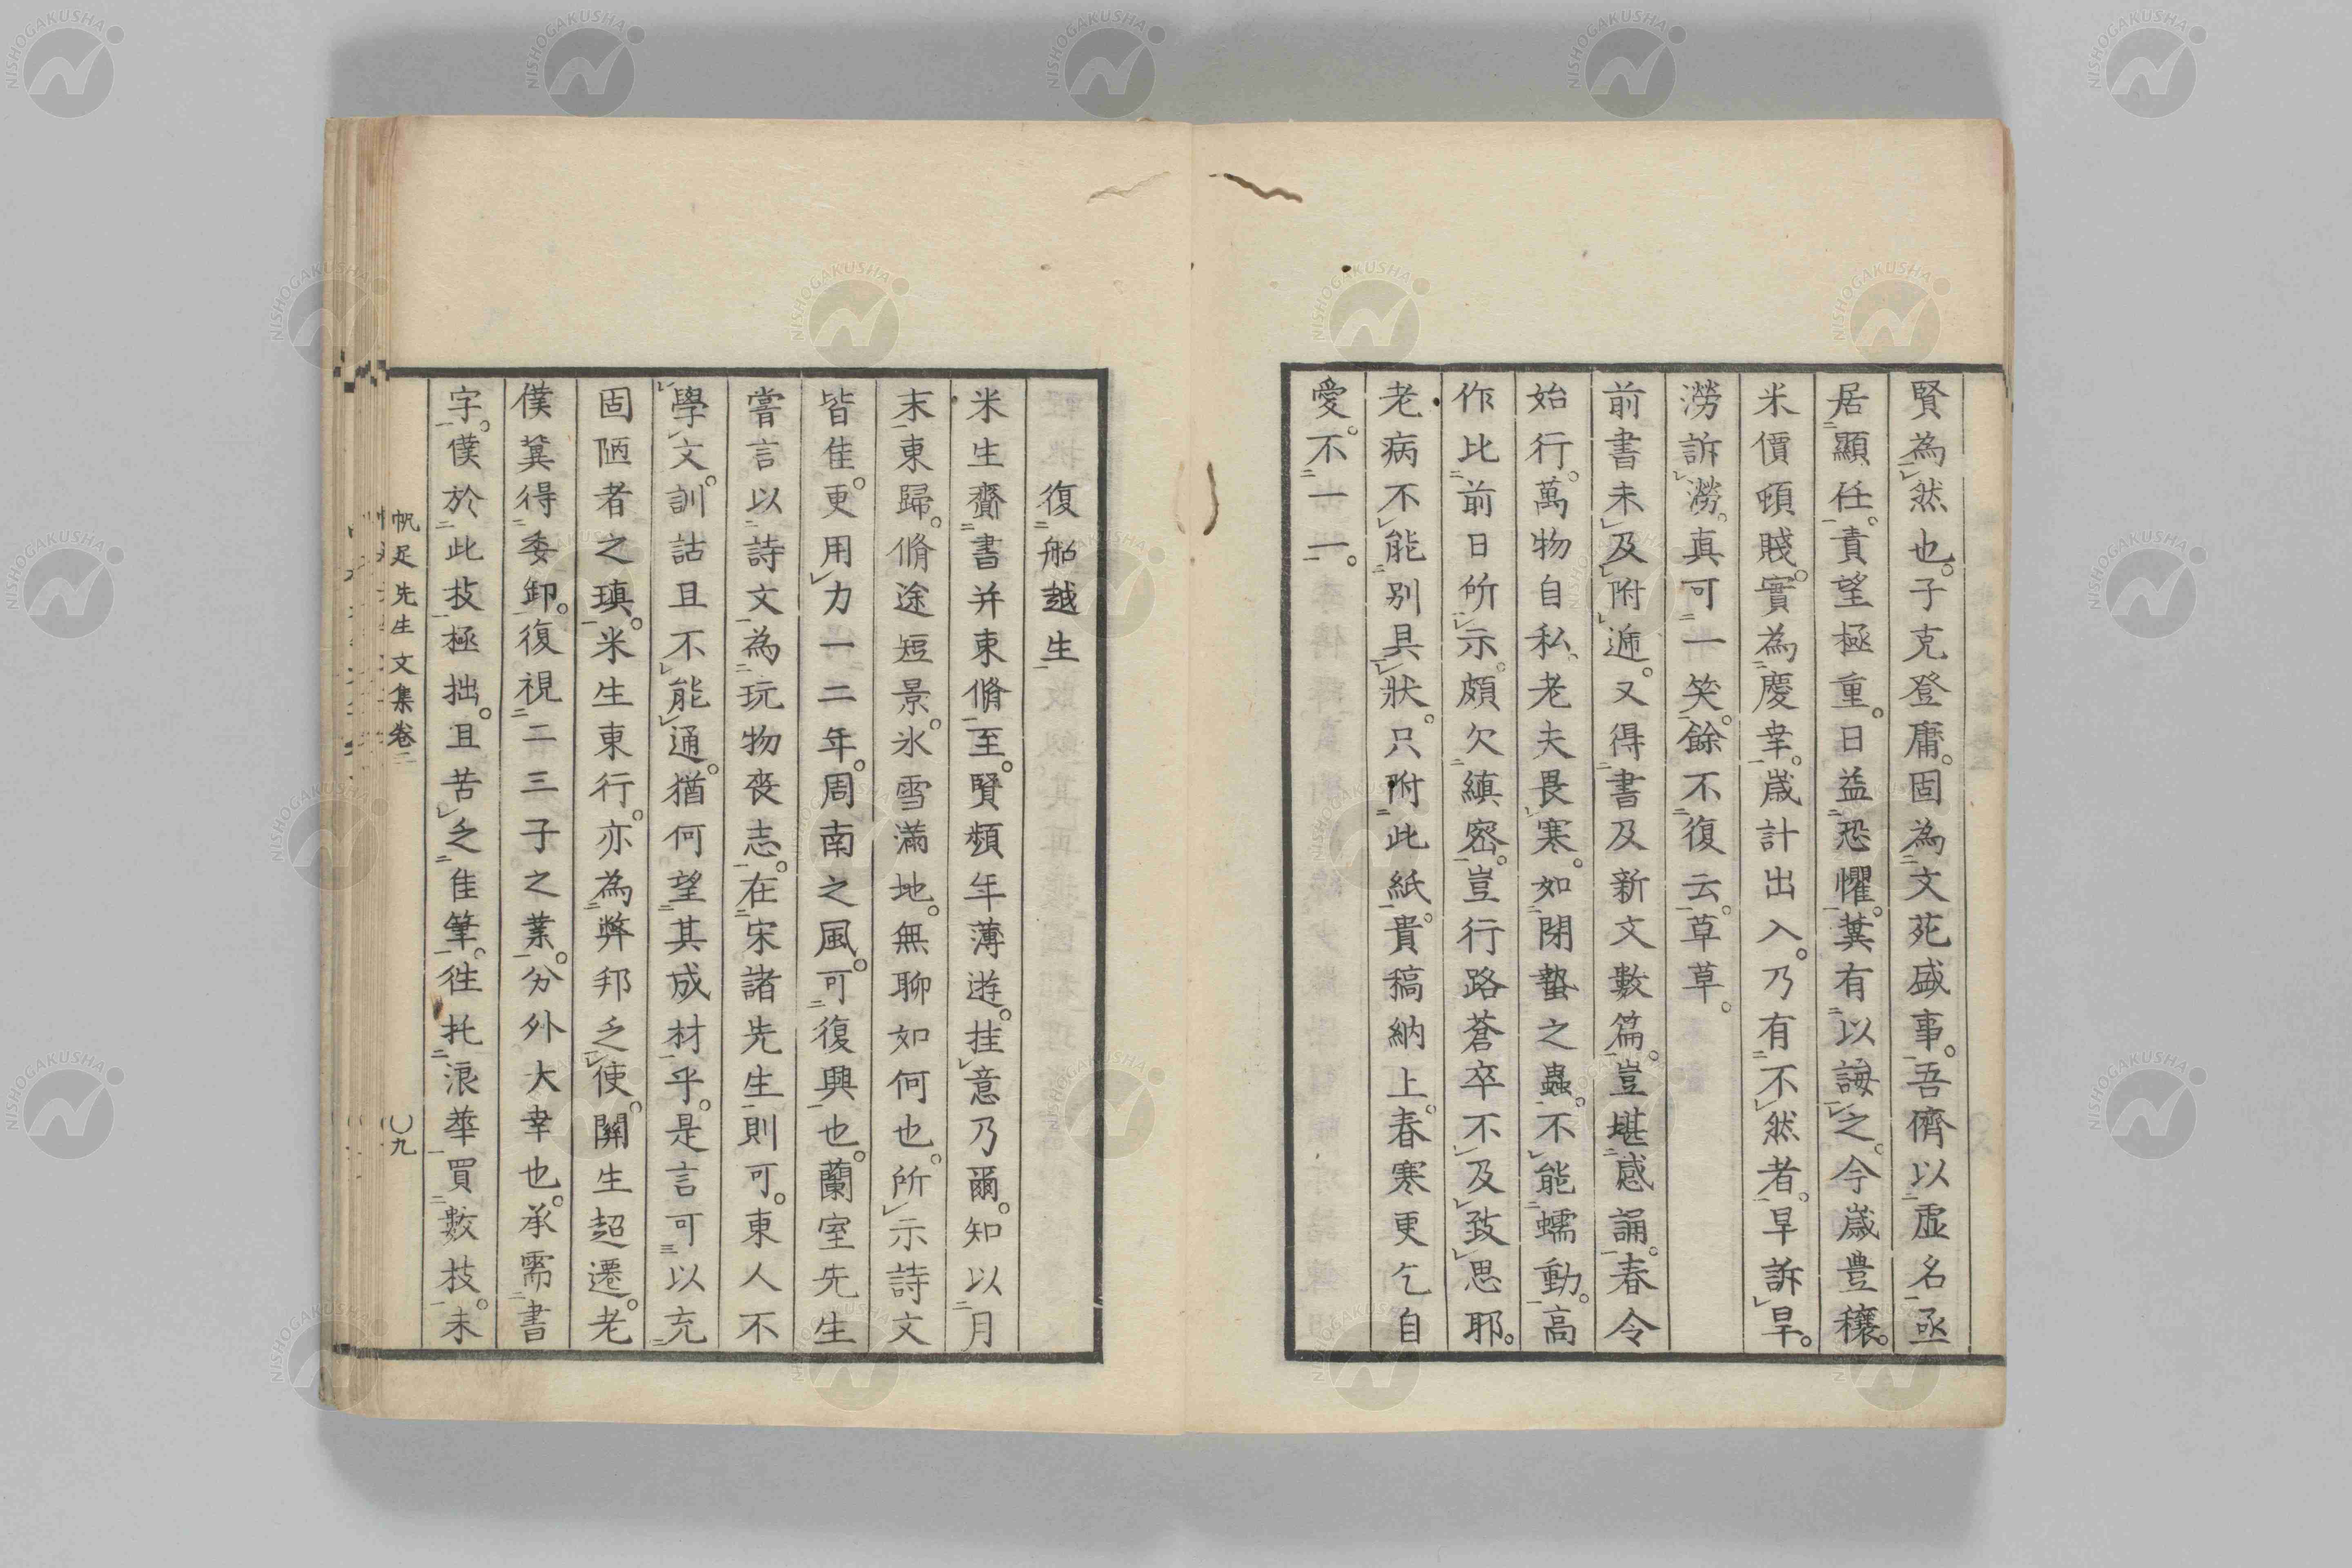 賢為然也。子克登庸。固為文苑盛事。吾儕以虛名亟
居顯任。責望極重。日益恐懼。冀有以誨之。今歲豊穰。
米價頓賤。實為慶幸。歳計出入。乃有不然者。旱訴旱。
澇訴澇。真可一笑。餘不復云。草草。
前書未及附逓。又得書及新文數篇。豈堪感誦。春令
始行。萬物自私。老夫畏寒。如閉蟄之蟲。不能蠕動。高
作比前日所示。頗欠縝密。豈行路蒼卒不及致思耶。
老病不能別具狀。只附此紙。貴稿納上。春寒更乞自
愛。不一一。
復船越生
米生齎書并束脩至。賢頻年薄遊。挂意乃爾。知以月
末東歸。脩途短景。氷雪滿地。無聊如何也。所示詩文
皆佳。更用力一二年。周南之風。可復興也。蘭室先生
嘗言以詩文為玩物喪志。在宋諸先生則可。東人不
學文。訓詁且不能通。猶何望其成材乎。是言可以充
固陋者之瑱。米生東行。亦為弊邦乏使。關生超遷。老
僕冀得委卸。復視二三子之業。分外大幸也。承需書
字。僕於此技極拙。且苦乏佳筆。往托浪華買數枝。未
帆足先生文集卷二
〇九
NISHOGAKUSHA